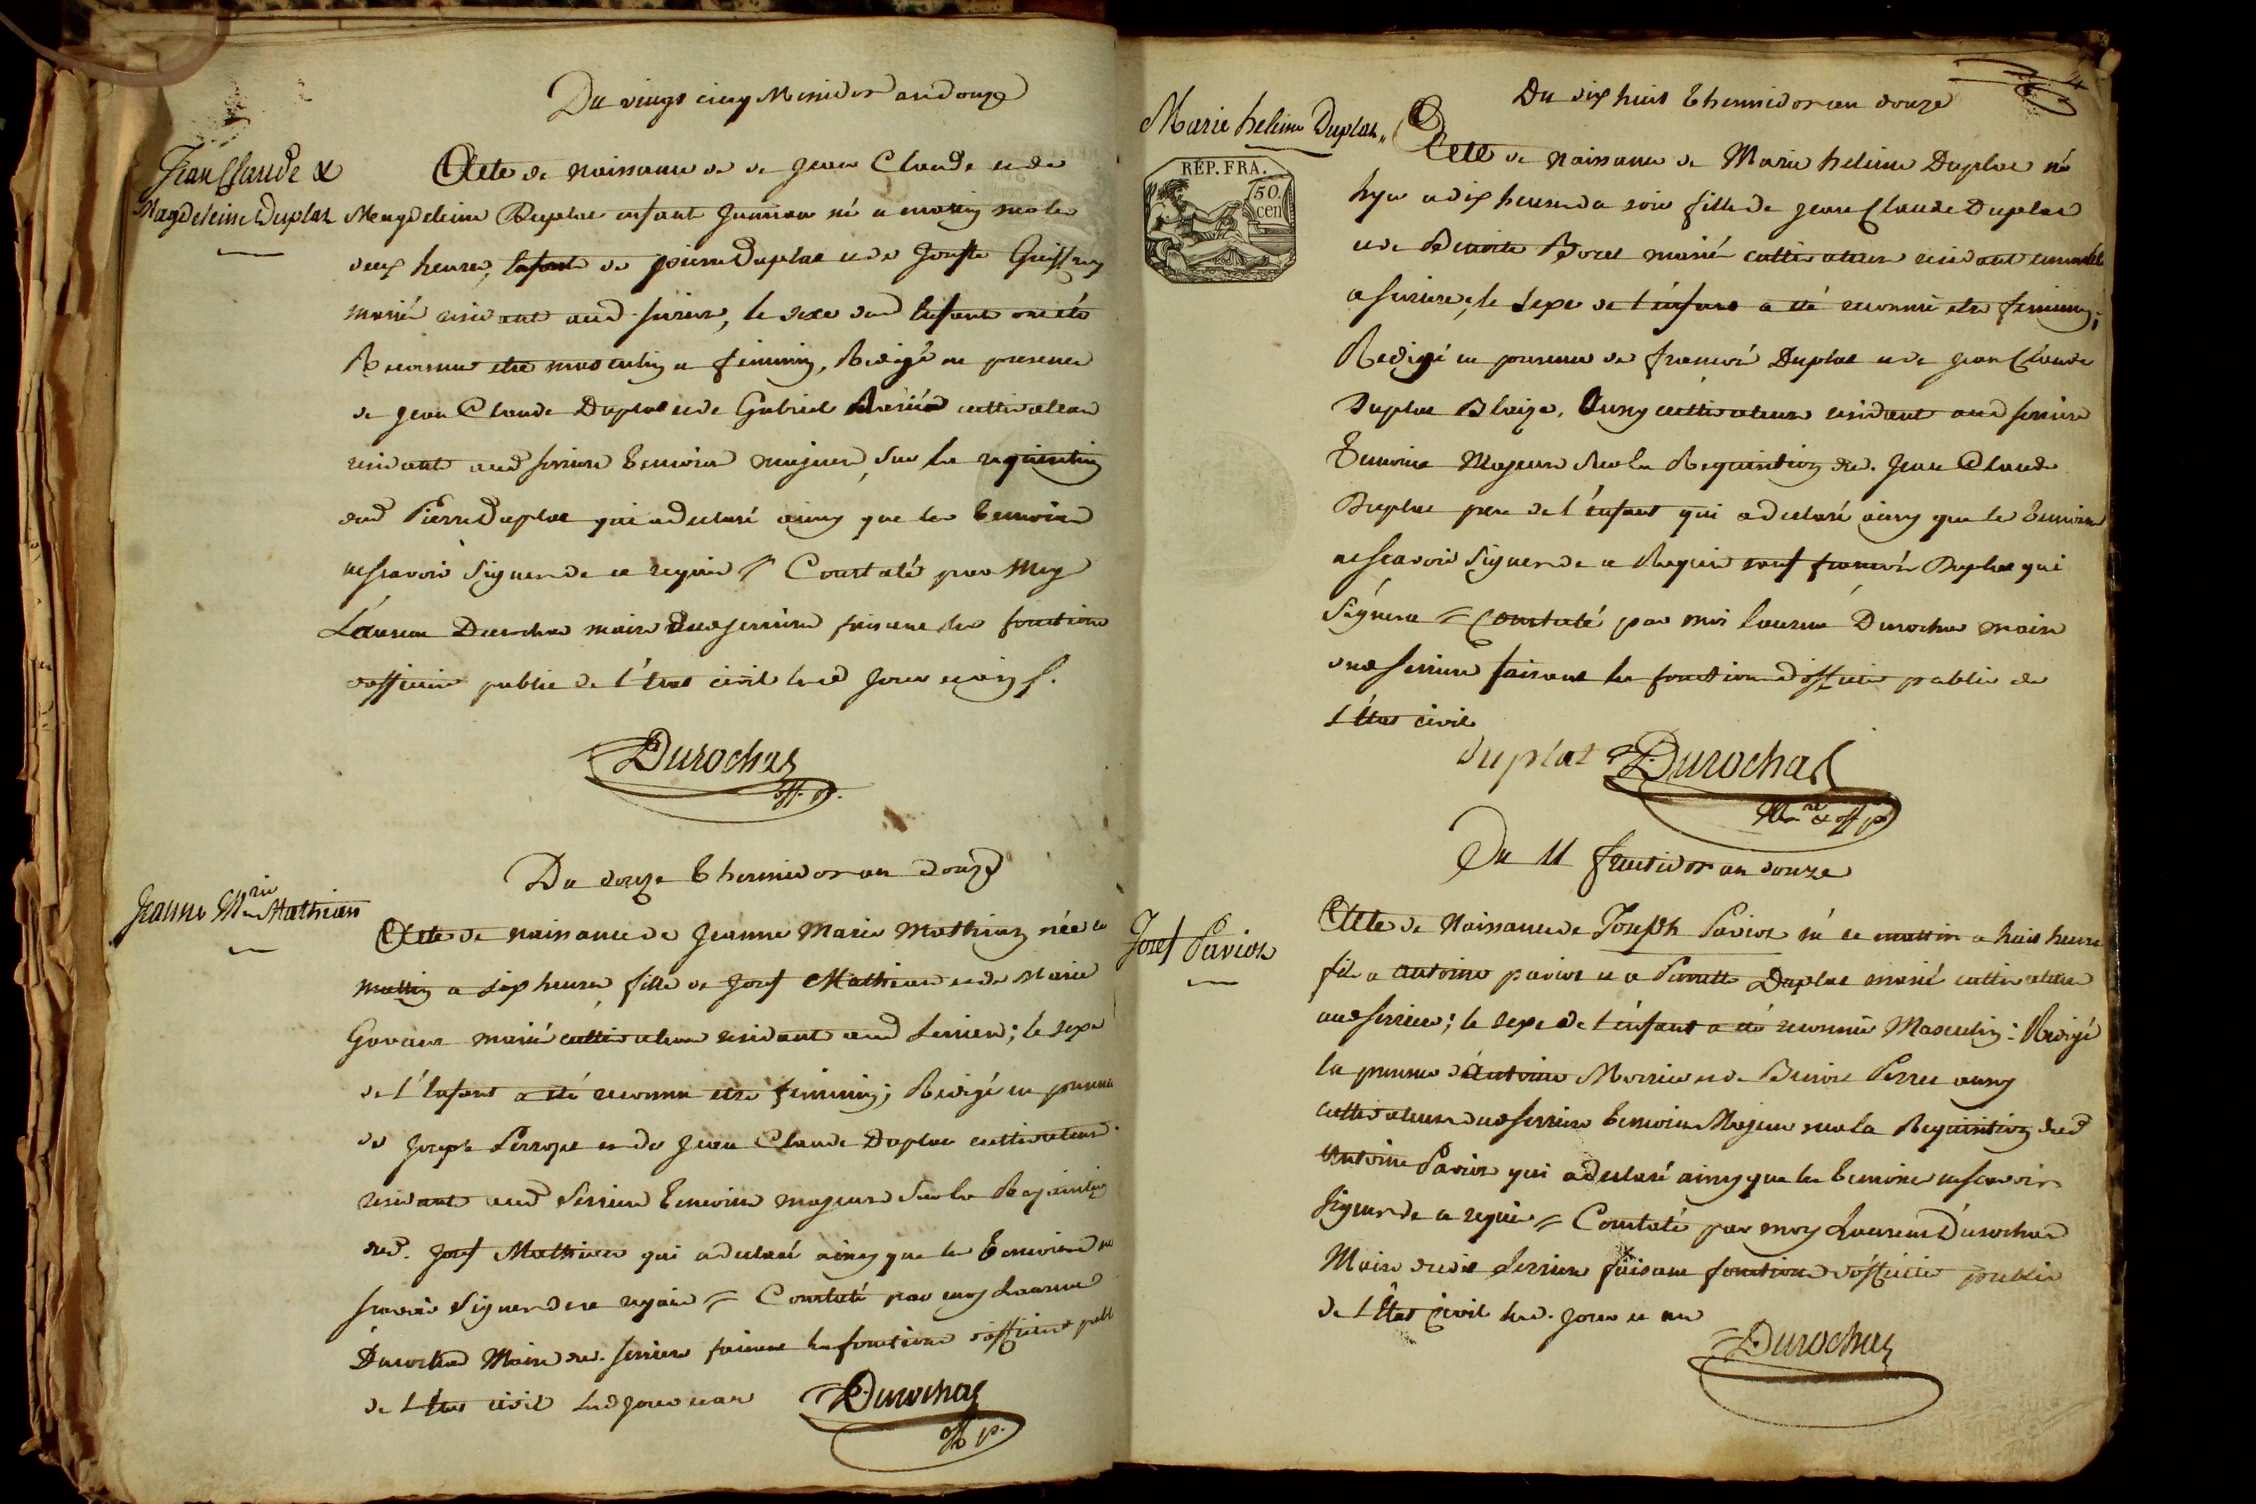 Du vingt cinq Messidor an douze
Jean Claude &
Magdeleine Duplat
Acte de naissance de de Jean Claude et de
Magdeleine Duplat enfant Jumeau né a matin sur les
deux heures, Enfants de pierre Duplat et de
marié residant aud. serriere, le sexe dud Enfant ont été
Reconnu etre masculin et feminin, Redigé en presence
de Jean Claude Duplat et de Gabriel cultivateurs
residant aud serriere temoins majeurs, sur la requisition
dud Pierre Duplat qui a declaré ainsy que les temoins
ne scavoir signer de ce requis = Constaté par Moy
Laurent Durochat maire dud serriere faisant les fonctions
d'officier public de l'état civil led jour et an
Durochat
off. p.
Du douze thermidor an douze
Jeanne Mrie Mathieu
Acte de naissance de Jeanne Marie Mathieu née ce
mattin a six heures, fille de Josef Mathieu et de Marie
marié cultivateurs residant aud serriere; le sexe
de l'Enfant a été reconnu etre feminin; Redigé en presence
de Joseph et de Jean Claude Duplat cultivateurs
residant aud serriere temoins majeurs sur la Requisition
dud. Josef Mathieu qui a declaré ainsy que les temoins ne
scavoir signer de ce requis = Constaté par moy Laurent
Durochat Maire dud. serriere faisant les fonctions d'officier publ
de l'état civil led jour et an
Durochat
off p.
Du dix huit thermidor an douze
Marie helene Duplat
RÉP. FRA.
50.
cen
Acte de naissance de Marie helene Duplat né
hyer a dix heures du soir fille de Jean Claude Duplat
et de Benoite Borel marié cultivateurs residant
a serriere, le sexe de l'enfant a été reconnu etre feminin;
Redigé en presence de francois Duplat et de Jean Claude
Duplat Blaize, tous cultivateurs residant aud serriere
temoins Majeurs sur la Requisition dud. Jean Claude
Duplat pere de l'enfant qui a declaré ainsy que les temoins
ne scavoir signer de ce Requis sauf francois Duplat qui
signera = Constaté par moi laurent Durochat maire
dud serriere faisant les fonctions d'officier public de
l'État civil
duplat Durochat
Mre & off p.
Du 11 fructidor an douze
Josef Paviot
Acte de naissance de Joseph Paviot né ce mattin a huit heures
fils a antoine paviot et a Pierrette Duplat marié cultivateurs
aud serriere; le sexe de l'enfant a été reconnu Masculin: Redigé
En presence d'antoine et de Benoit Perret
cultivateurs dud serriere temoins Majeurs sur la Requisition dud
Antoine Paviot qui a declaré ainsy que les temoins ne scavoir
signer de ce requis = Constaté par moy Laurent Durochat
Maire dudit serriere faisant fonctions d'officier public
de l'État civil led. jour et an
Durochat